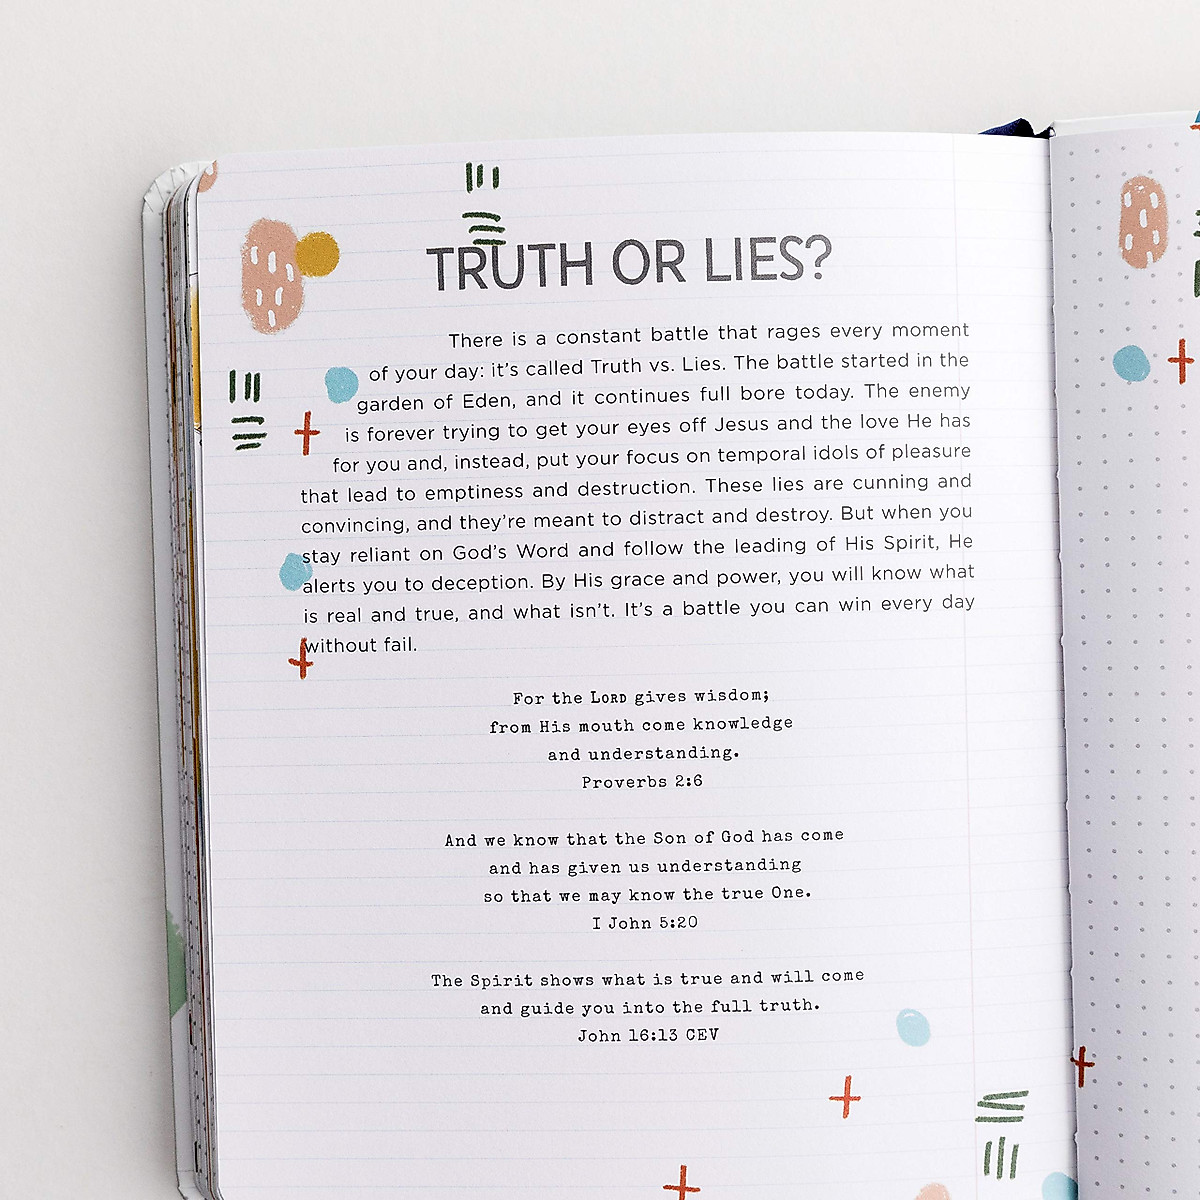 TRUTH OR LIES?
There is a constant battle that rages every moment
of your day: it's called Truth vs. Lies. The battle started in the
garden of Eden, and it continues full bore today. The enemy
is forever trying to get your eyes off Jesus and the love He has
for you and, instead, put your focus on temporal idols of pleasure
that lead to emptiness and destruction. These lies are cunning and
convincing, and they're meant to distract and destroy. But when you
stay reliant on God's Word and follow the leading of His Spirit, He
alerts you to deception. By His grace and power, you will know what
is real and true, and what isn't. It's a battle you can win every day
without fail.
For the LORD gives wisdom;
from His mouth come knowledge
and understanding.
Proverbs 2:6
And we know that the Son of God has come
and has given us understanding
so that we may know the true One.
I John 5:20
The Spirit shows what is true and will come
and guide you into the full truth.
John 16:13 CEV